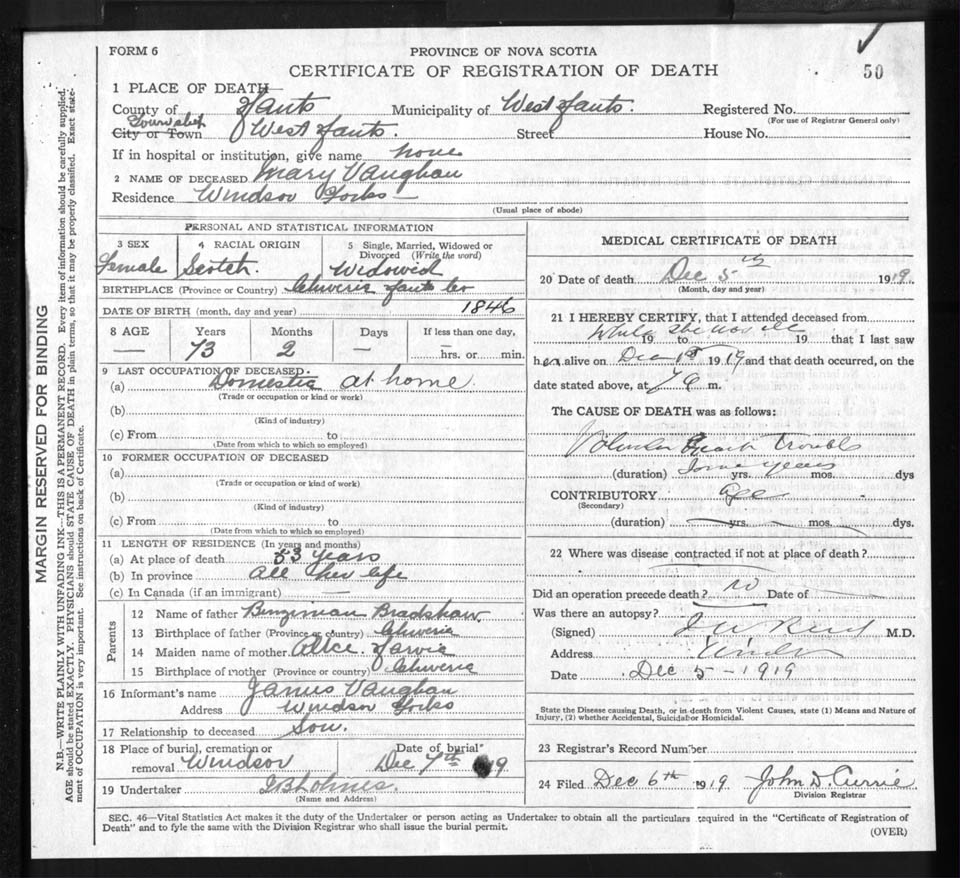 FORM 6
PROVINCE OF NOVA SCOTIA
50
CERTIFICATE OF REGISTRATION OF DEATH
1 PLACE OF DEATH
County of Hants Municipality of West Hants. Registered No.
(For use of Registrar General only)
Township
City or Town West Hants. Street House No.
If in hospital or institution, give name none
2 NAME OF DECEASED Mary Vaughan
Residence Windsor Forks
(Usual place of abode)
PERSONAL AND STATISTICAL INFORMATION
3 SEX 4 RACIAL ORIGIN 5 Single, Married, Widowed or Divorced (Write the word)
Female Scotch. Widowed
BIRTHPLACE (Province or Country) Cheverie Hants Co
DATE OF BIRTH (month, day and year) 1846
8 AGE Years Months Days If less than one day,
— 73 2 — hrs. or min.
9 LAST OCCUPATION OF DECEASED.
(a) Domestic at home
(Trade or occupation or kind or work)
(b)
(Kind of industry)
(c) From to
(Date from which to which so employed)
10 FORMER OCCUPATION OF DECEASED
(a)
(Trade or occupation or kind of work)
(b)
(Kind of industry)
(c) From to
(Date from which to which so employed)
11 LENGTH OF RESIDENCE (In years and months)
(a) At place of death 53 years
(b) In province all her life
(c) In Canada (if an immigrant) —
Parents
12 Name of father Bradshaw
13 Birthplace of father (Province or country) Cheverie
14 Maiden name of mother Alice Harvie
15 Birthplace of mother (Province or country) Cheverie
16 Informant's name James Vaughan
Address Windsor Forks
17 Relationship to deceased Son.
18 Place of burial, cremation or Date of burial
removal Windsor Dec 7th 19
19 Undertaker Holmes.
(Name and Address)
MEDICAL CERTIFICATE OF DEATH
20 Date of death Dec 5th 1919
(Month, day and year)
21 I HEREBY CERTIFY, that I attended deceased from
while she was ill
19 to 19 that I last saw
her alive on Dec 1st 1919 and that death occurred, on the
date stated above, at 7 a m.
The CAUSE OF DEATH was as follows:
heart trouble
(duration) some years yrs. mos. dys
CONTRIBUTORY age
(Secondary)
(duration) yrs. mos. dys.
22 Where was disease contracted if not at place of death?
Did an operation precede death? no Date of
Was there an autopsy?
(Signed) M.D.
Address Windsor
Date Dec 5 - 1919
State the Disease causing Death, or in death from Violent Causes, state (1) Means and Nature of
Injury, (2) whether Accidental, Suicidal or Homicidal.
23 Registrar's Record Number
24 Filed Dec 6th 1919 John D. Currie
Division Registrar
SEC. 46—Vital Statistics Act makes it the duty of the Undertaker or person acting as Undertaker to obtain all the particulars required in the "Certificate of Registration of
Death" and to fyle the same with the Division Registrar who shall issue the burial permit.
(OVER)
MARGIN RESERVED FOR BINDING
N.B.—WRITE PLAINLY WITH UNFADING INK—THIS IS A PERMANENT RECORD. Every item of information should be carefully supplied.
AGE should be stated EXACTLY. PHYSICIANS should STATE CAUSE OF DEATH in plain terms, so that it may be properly classified. Exact state-
ment of OCCUPATION is very important. See instructions on back of Certificate.